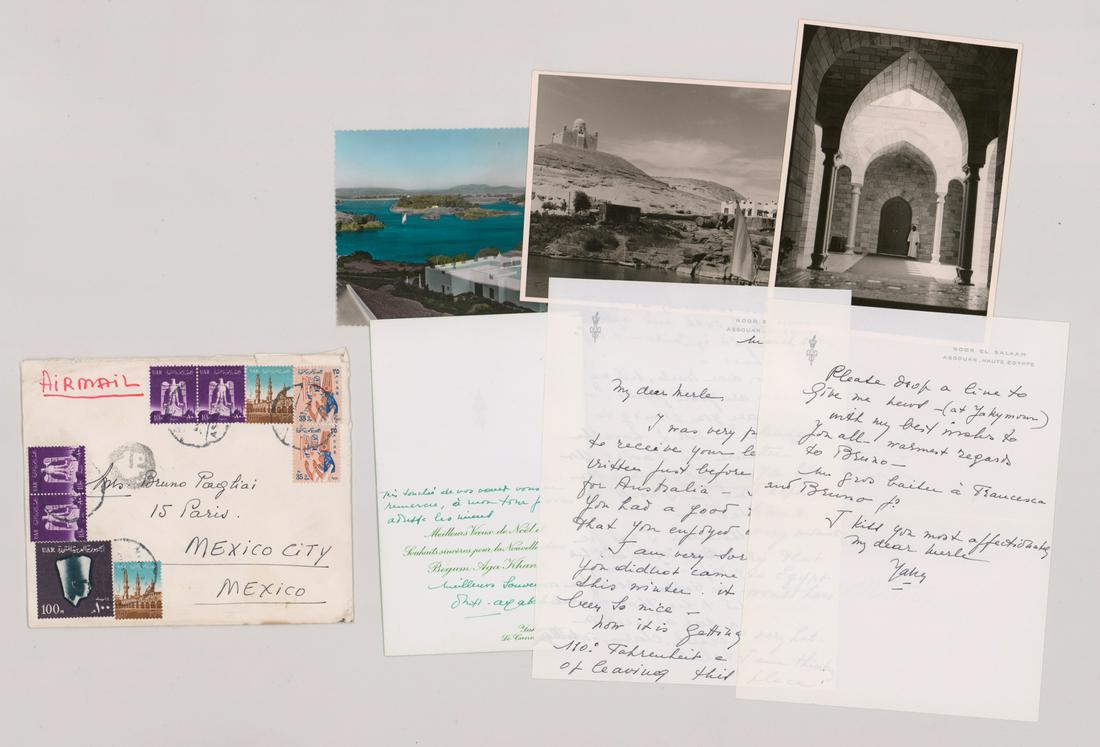 AIRMAIL
UAR
UAR
UAR
UAR
10M
10M
35M
35M
100M
Mrs. Bruno Pagliai
15 Paris.
MEXICO CITY
MEXICO
très touchée de vos voeux vous
remercie, à mon tour
adresse les miens
Meilleurs Voeux de Noël
Souhaits sincères pour la Nouvelle
Begum Aga Khan
meilleurs souve
Le Cann
NOOR E
ASSOUAN
My dear Merle
I was very p
to receive your le
written just before
for Australia –
You had a good
that you enjoyed
I am very sor
you didnot came
this winter. it
been so nice –
now it is getting
110° Fahrenheit
of leaving this
NOOR EL SALAAM
ASSOUAN, HAUTE EGYPTE
Please drop a line to
give me news – (at Yakymour)
with my best wishes to
you all – warmest regards
to Bruno –
un gros baiser à Francesca
and Bruno J.
I kiss you most affectionately
my dear Merle
Yaky